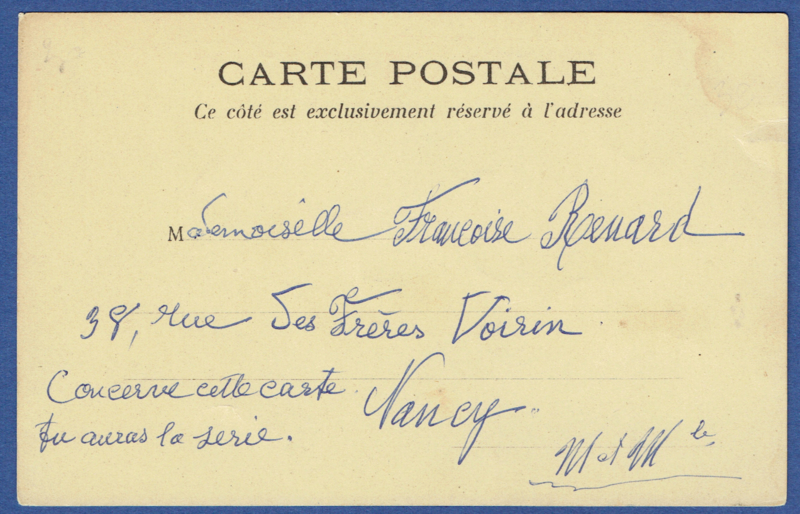 CARTE POSTALE
Ce côté est exclusivement réservé à l'adresse
Mademoiselle Françoise Renard
38, rue des Frères Voirin
Concerve cette carte
tu auras la serie.
Nancy
M et Mlle